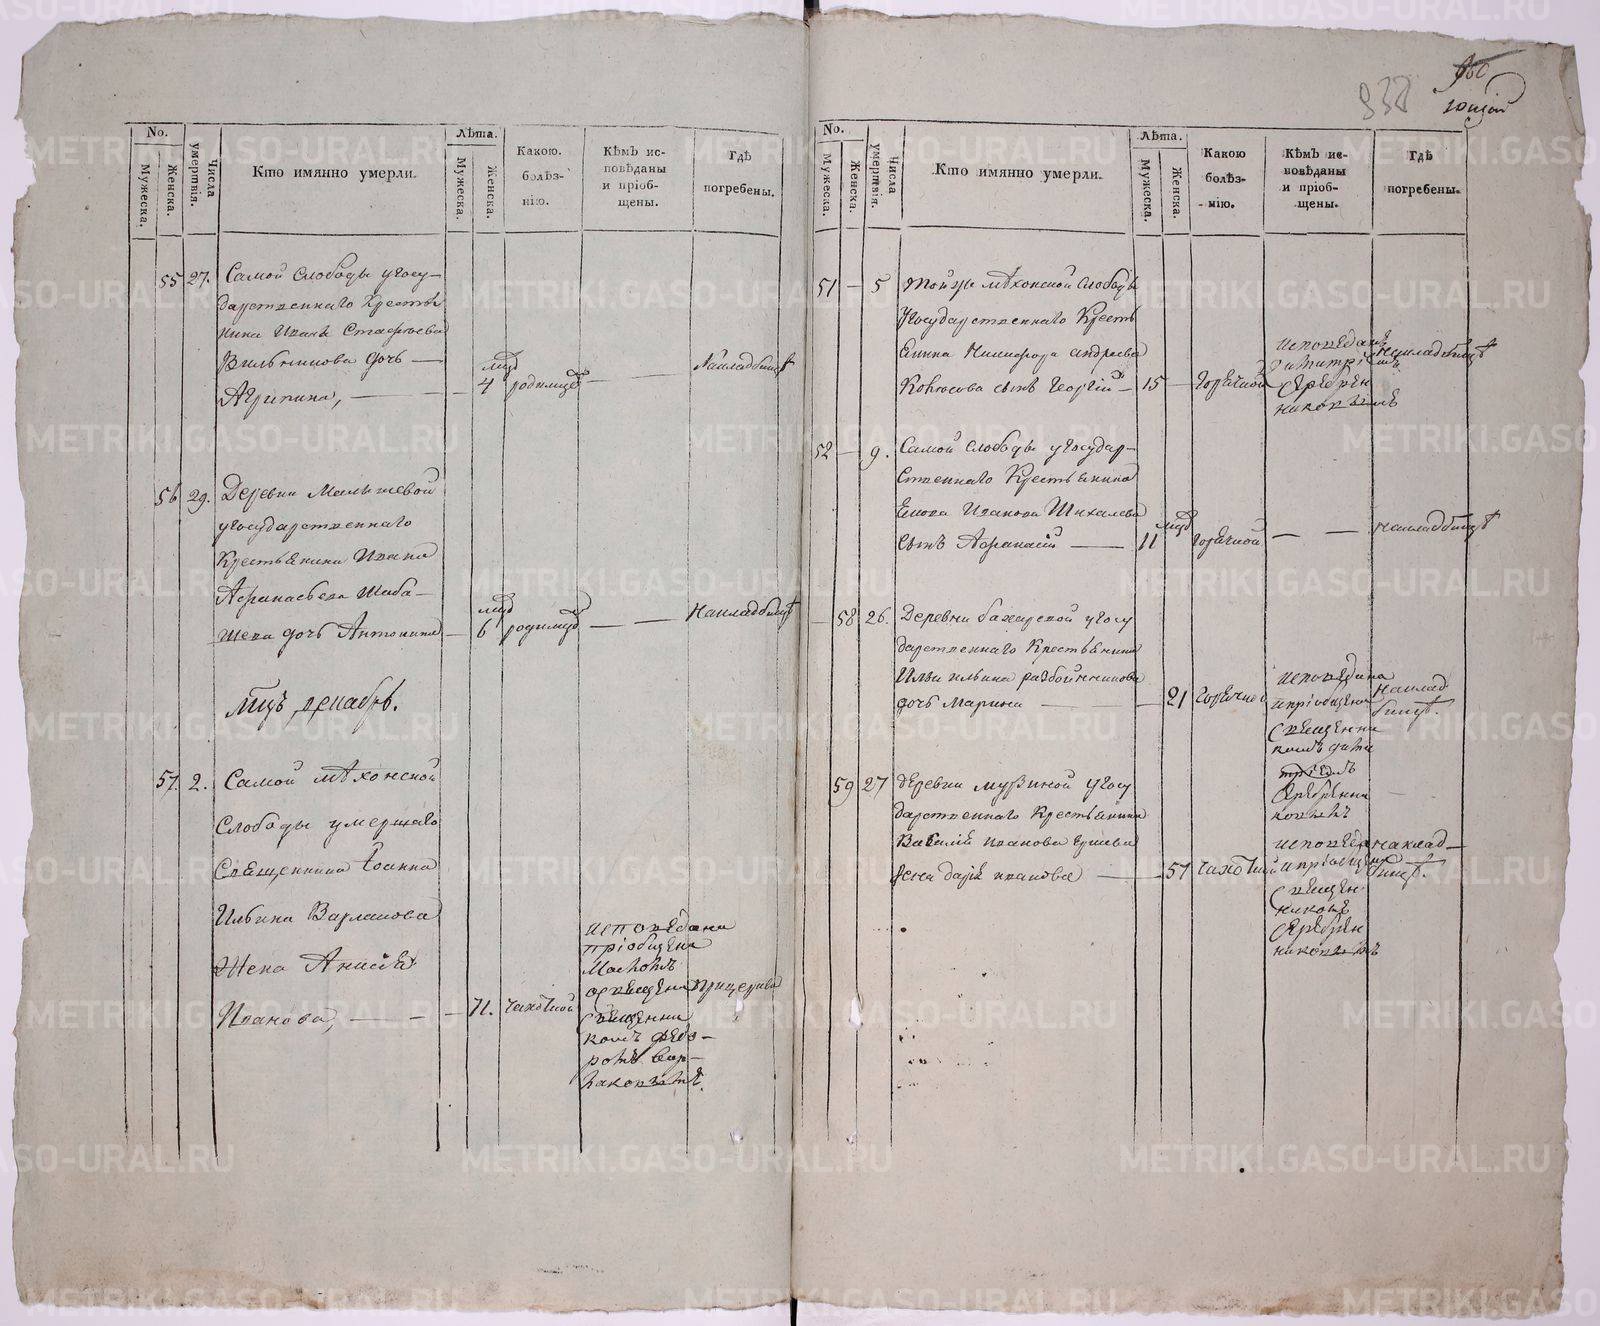 938
No.
Мужеска.
Женска.
Числа умертвія.
Кто имянно умерли.
Лѣта.
Мужеска.
Женска.
Какою. болѣз- нію.
Кѣмъ ис- повѣданы и пріоб- щены.
Гдѣ погребены.
55 27. Самой слободы у госу-
дарственнаго крестья
нина Ивана
дочь —
Агрипина, — 4 мцъ родимца — — На кладбищѣ
56 29. Деревни Малышевой
у государственнаго
крестьянина Ивана
Афанасьева Шаба-
шева дочь Антонина — 6 мцъ родимца — — На кладбищѣ
Мцъ декабрь.
57. 2. Самой Мѣхонской
слободы умершаго
священника Іоанна
Ильина Варлакова
жена Анисія
Иванова, — — 71. чахоткой
исповѣдана
пріобщена
масломъ
освящена
священни
комъ Ѳедо-
ромъ Вар-
лаковымъ.
при церкви
No.
Мужеска.
Женска.
Числа умертвія.
Кто имянно умерли.
Лѣта.
Мужеска.
Женска.
Какою болѣз- нію.
Кѣмъ ис- повѣданы и пріоб- щены.
Гдѣ погребены.
51 — 5 Тойже Мѣхонской слободы
у государственнаго кресть
янина Никифора Андреева
сынъ Георгій — 15 — горячкой
исповѣданъ
Димитріемъ
Серебрен
никовымъ
на кладбищѣ
52 — 9. Самой слободы у государ-
ственнаго крестьянина
Ивана Шихалева
сынъ Афанасій — 11 мцъ горячкой — — на кладбищѣ
— 58 26. Деревни Бахарской у госу
дарственнаго крестьянина
Ильи Ильина Разбойникова
дочь Марина — — 21 горячкой
исповѣдана
и пріобщена
священни
комъ Дими
тріемъ
Серебренни
ковымъ
на клад
бищѣ.
59 27 деревни Мурзиной у госу
дарственнаго крестьянина
Василія Иванова Ершева
жена Дарія Иванова — — 57 чахоткой
исповѣд
и пріобщена
священ
никомъ
Серебрен
никовымъ
на клад—
бищѣ.
METRIKI.GASO-URAL.RU